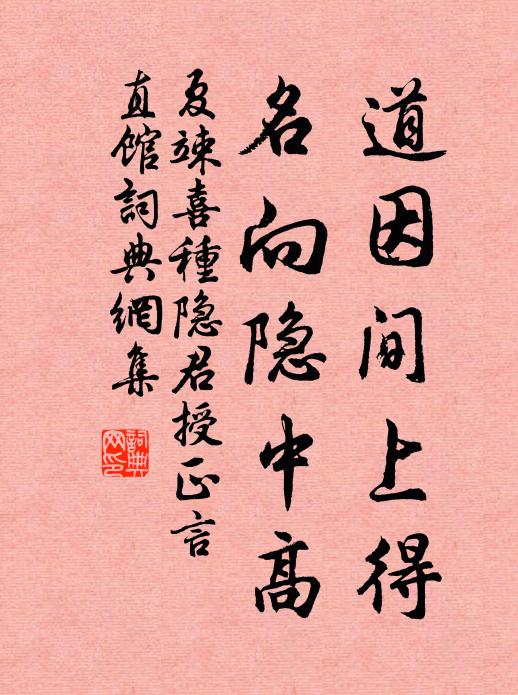 道因间上得
名向隐中高
夏竦喜種隐君授正言
直馆詞典網集
詞典網印